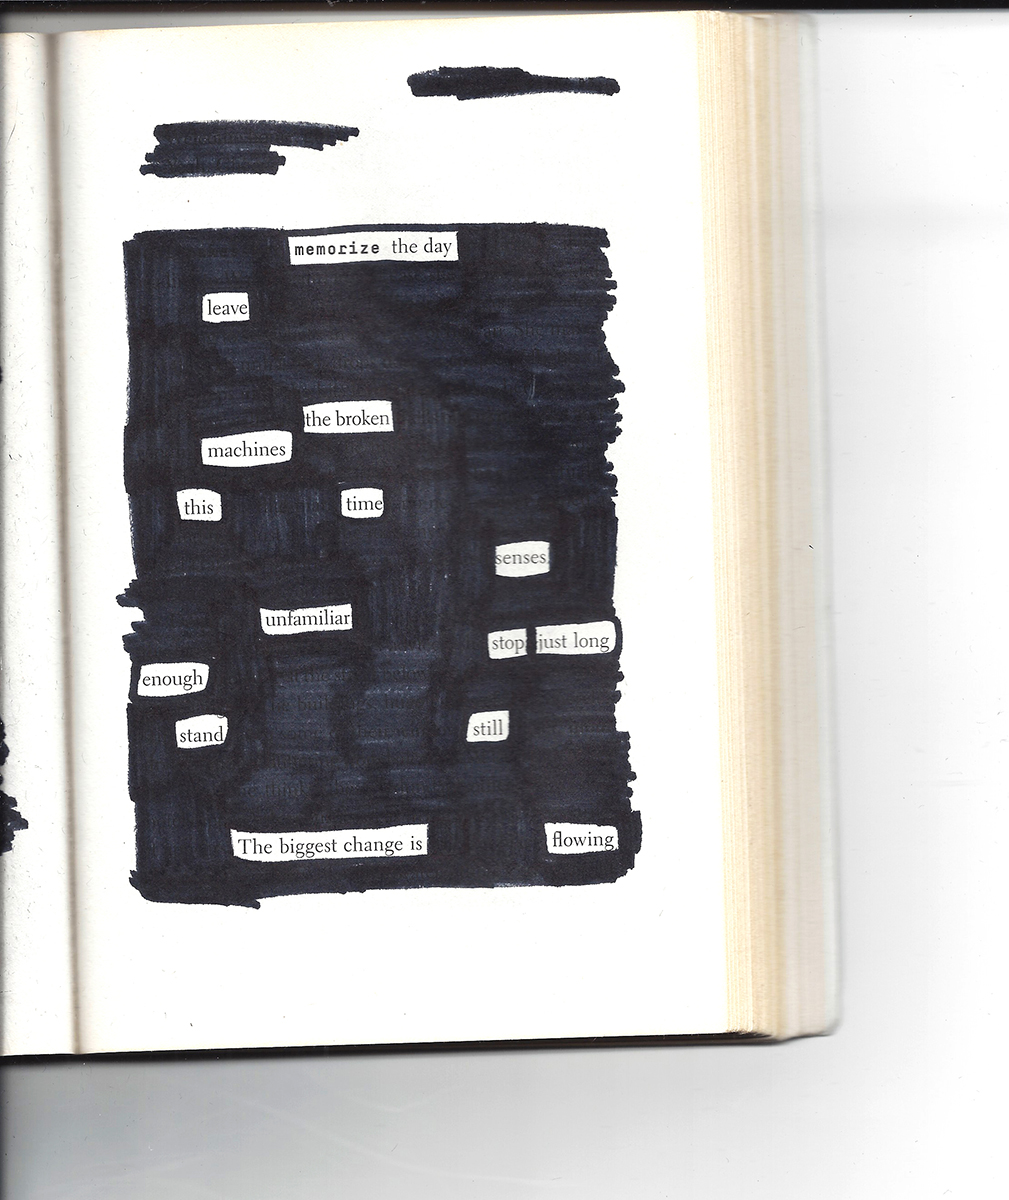 memorize the day
leave
the broken
machines
this time
senses
unfamiliar
stop just long
enough
stand still
The biggest change is flowing